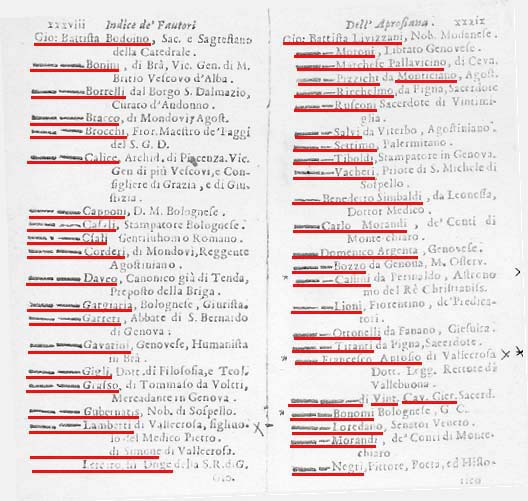 xxxviii Indice de' Fautori
Gio: Battista Bodoino, Sac. e Sagrestano
della Catedrale.
Bonini, di Brà, Vic. Gen. di M.
Britio Vescovo d'Alba.
Borrelli dal Borgo S. Dalmazio,
Curato d'Andonno.
Bracco, di Mondovi, Agost.
Brocchi, Fior. Maestro de' Paggi
del S. G. D.
Calice, Archid. di Piacenza. Vic.
Gen di più Vescovi, e Con-
sigliere di Grazia, e di Giu-
stizia.
Capponi, D. M. Bolognese.
Stampatore Bolognese.
Gentiluomo Romano.
Corderi, di Mondovi, Reggente
Agostiniano.
Daveo, Canonico già di Tenda,
Preposto della Briga.
Gargiaria, Bolognese, Giurista.
Garreti, Abbate di S. Bernardo
di Genova;
Gavarini, Genovese, Humanista
in Brà.
Gigli, Dott. di Filosofia, e Teol.
Grasso, di Tommaso da Voltri,
Mercadante in Genova.
Gubernatis, Nob. di Sospello.
Lamberti di Vallecrosa, figliuo-
lo del Medico Pietro.
di Simone di Vallecrosa.
della S.R. di G.
Gio.
Dell' Aprosiana. xxxix
Gio: Battista Livizzani, Nob. Modanese.
Moroni, Libraro Genovese.
Marchese Pallavicino, di Ceva.
Pizzichi da Monticiano, Agost.
Ricchelmo, da Pigna, Sacerdote
Rusconi Sacerdote di Vintimi-
glia.
Salvi da Viterbo, Agostiniano.
Settimo, Palermitano.
Tiboldi, Stampatore in Genova.
Vacheri, Priore di S. Michele di
Sospello.
Benedetto Sinibaldi, da Leonessa,
Dottor Medico.
Carlo Morandi, de' Conti di
Monte-chiaro.
Domenico Argenta, Genovese.
Bozzo da Genoua, M. Osserv.
Cassini da Perinaldo, Astrono
mo del Rè Christianiss.
Lioni, Fiorentino, de' Predica-
tori.
Ottonelli da Fanano, Giesuita.
Tiranti da Pigna, Sacerdote.
Francesco Antosio di Vallecrosa
Dott. Legg. Rettore di
Vallebuona.
di Vint. Cav. Gier. Sacerd.
Bonomi Bolognese, G C.
Loredano, Senator Veneto.
Morandi, de' Conti di Monte-
chiaro
Negri, Pittore, Poeta, ed Histo-
rico